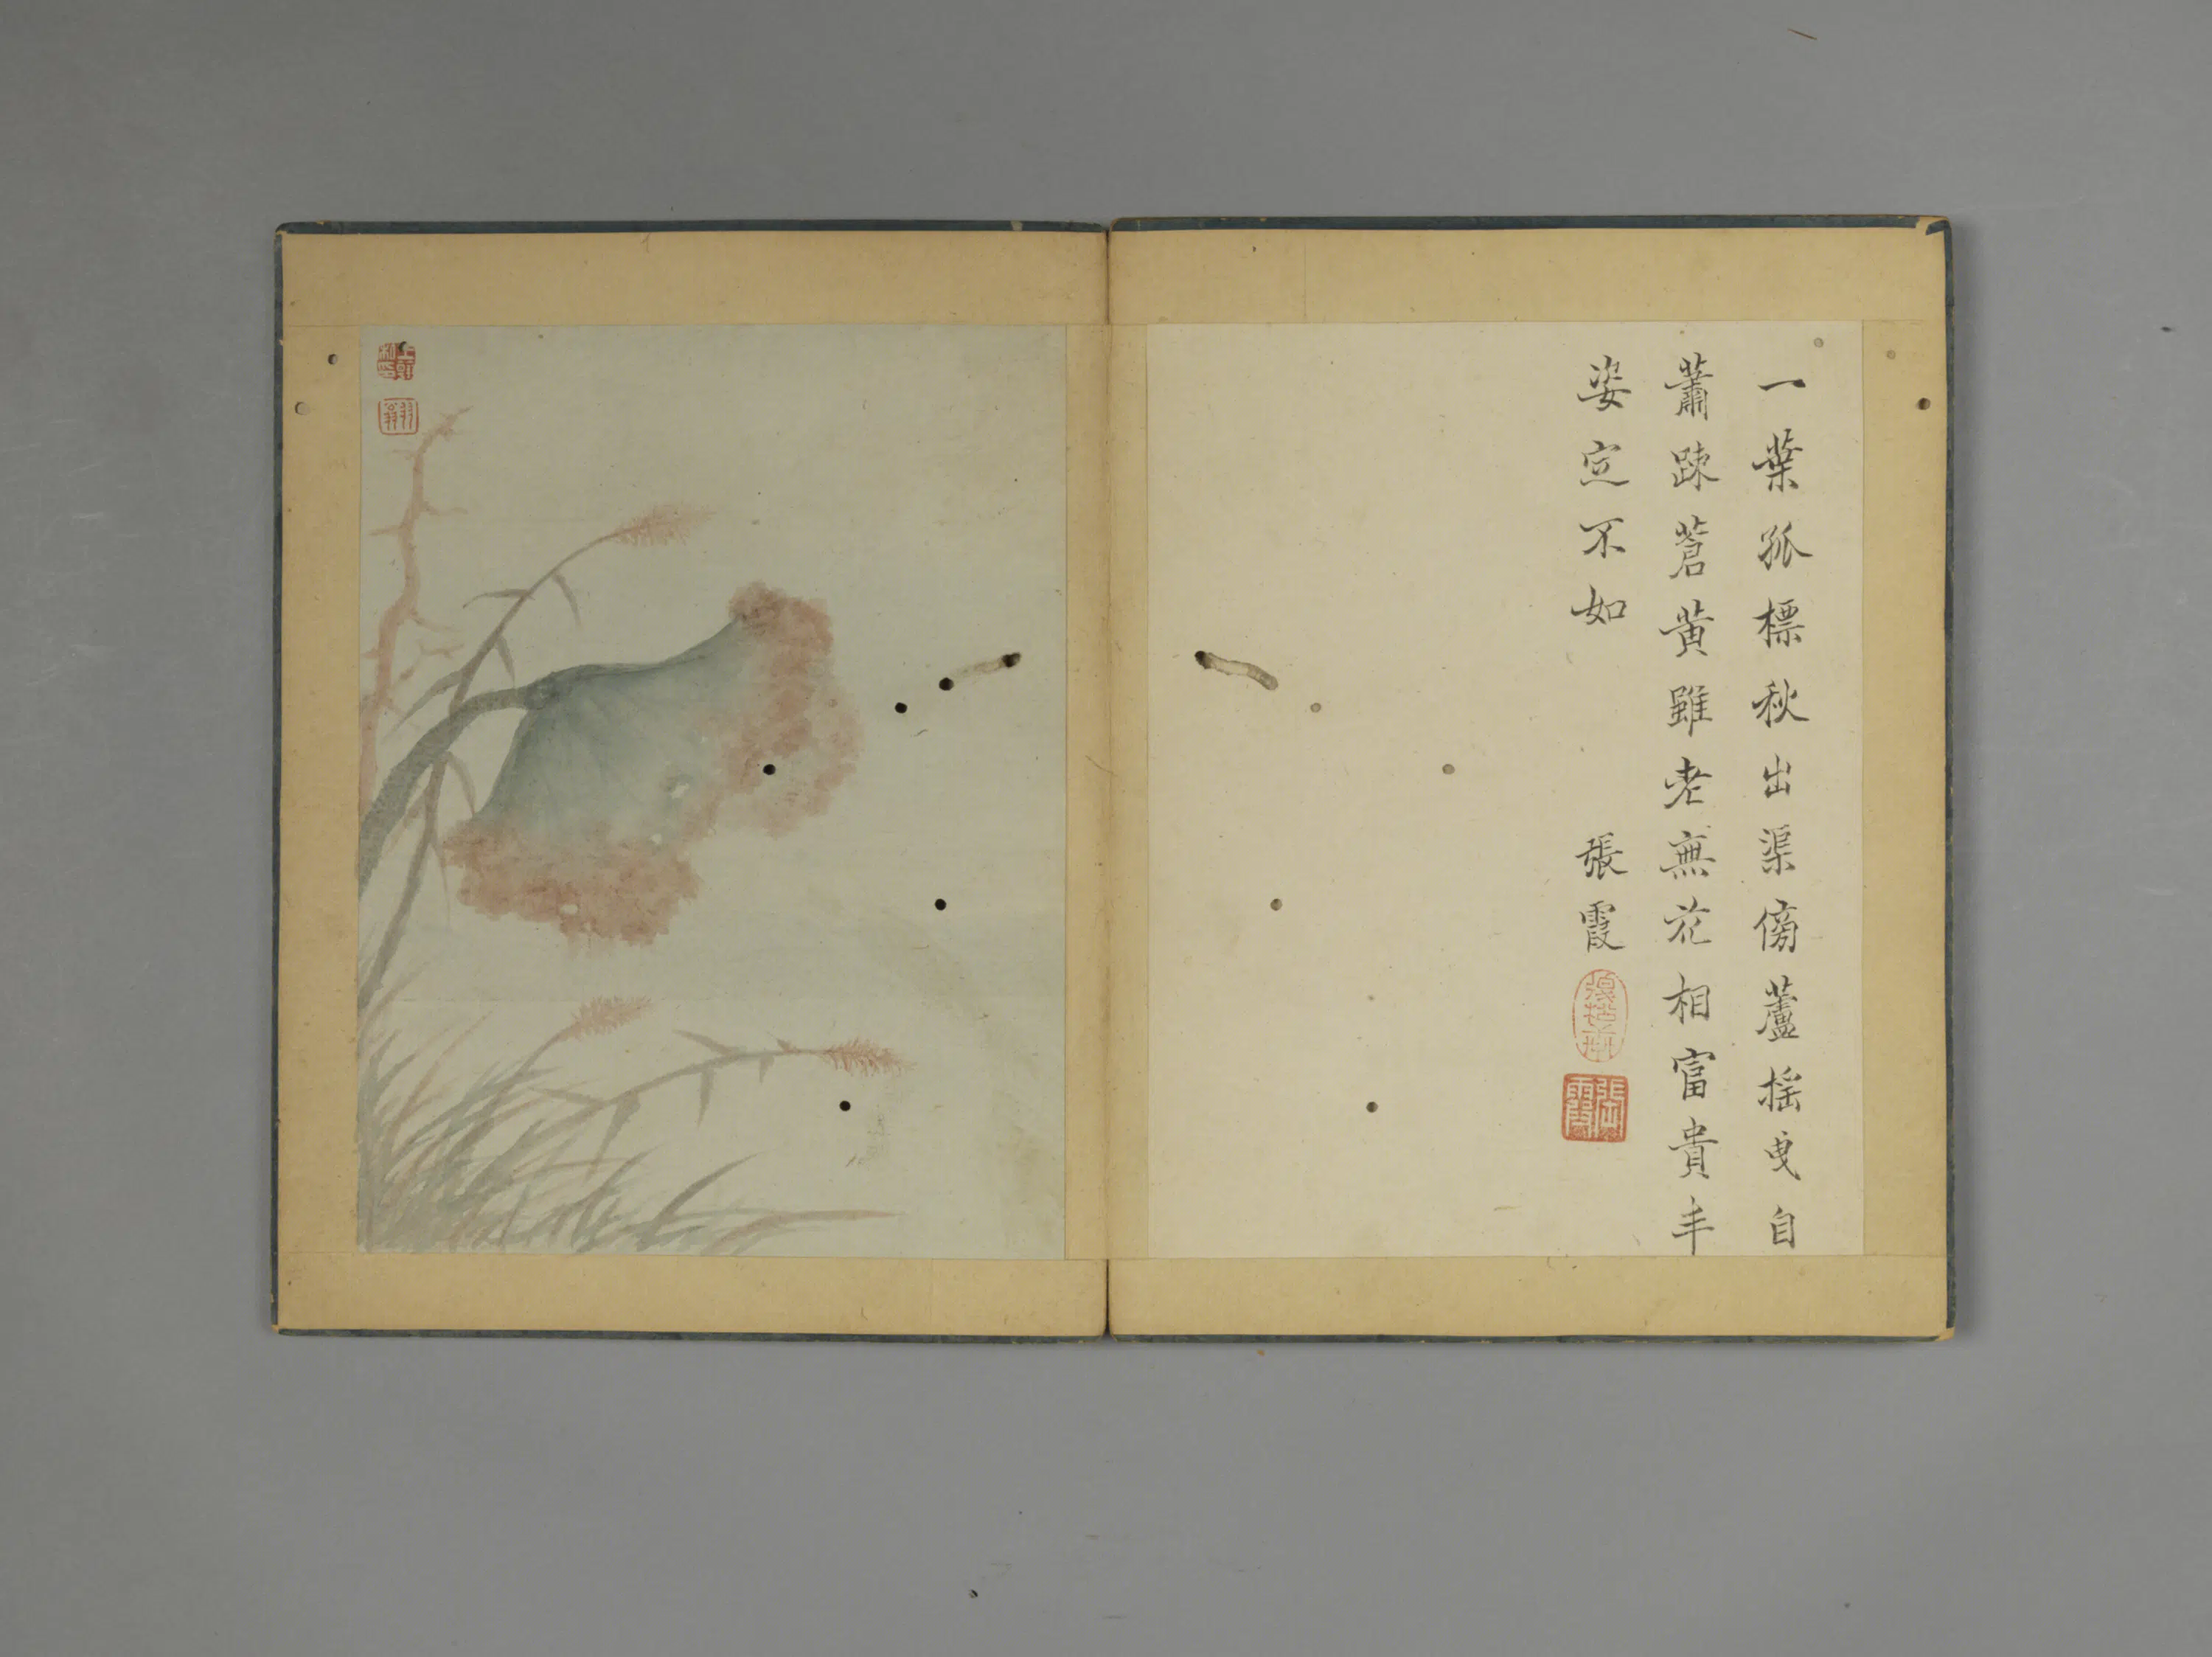 一葉孤標秋出渠傍蘆揺曳自
蕭踈蒼黄雖老無花相富貴丰
姿定不如
張霞
張霞